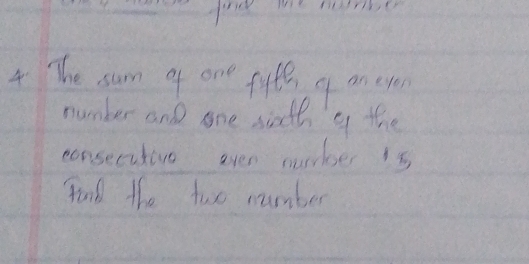 find the number
4 The sum of one fyfth of an even
number and one sixth of the
consecutive even number 15
Find the two number